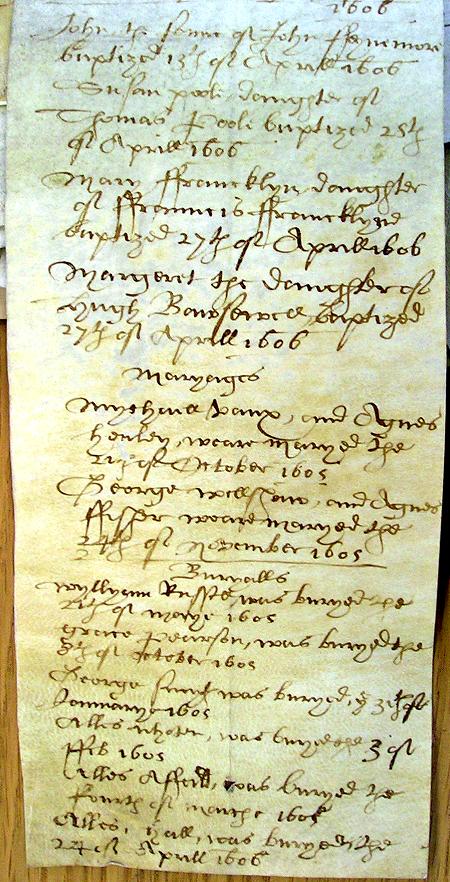 1606
John the sonne of John ffenemore
baptized 13th of Aprill 1606
Susan poole daughter of
Thomas Poole baptized 25th
of Aprill 1606
Mary ffrancklyn daughter
of ffrauncis ffrancklyne
baptized 27th of Aprill 1606
Margeret the daughter of
Hugh baptized
27th of Aprill 1606
Maryages
Mychaell Vaux, and Agnes
Henley, weare maryed the
of October 1605
George and Agnes
ffisher weare maryed the
of November 1605
Buryalls
Wyllyam was buryed the
of 1605
Grace Pearson, was buryed the
of October 1605
George was buryed, ye
Januarye 1605
Alles was buryed the 3 of
ffeb 1605
Alles was buryed the
fourth of marche 1605
Alles, Hall, was buryed the
24 of Aprill 1606